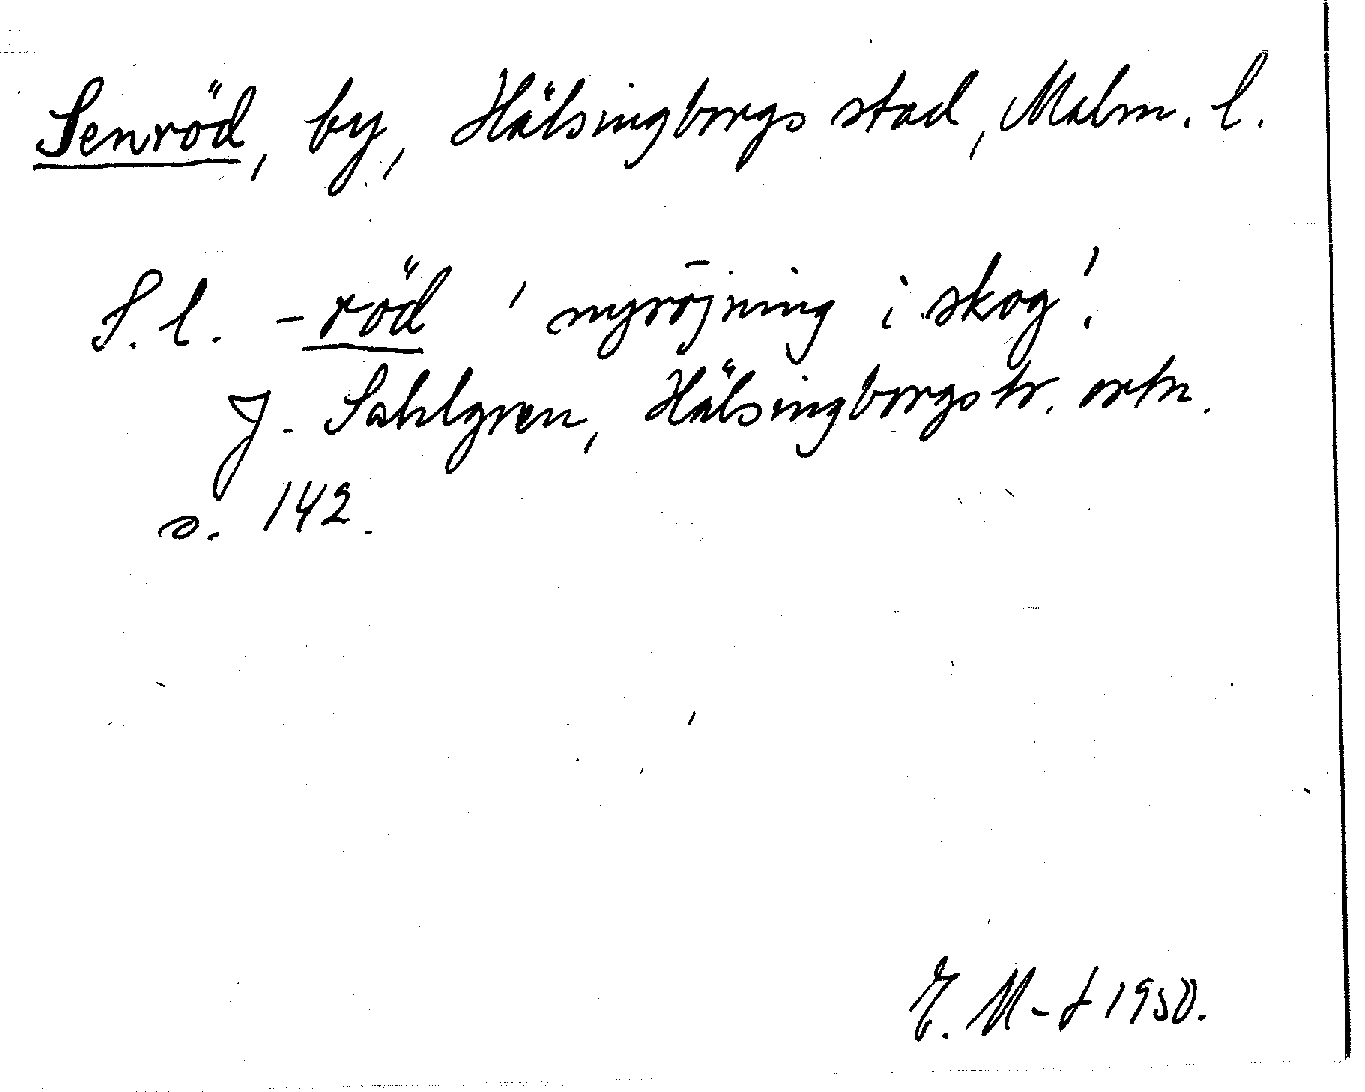 Senröd, by, Hälsingborgs stad, Malm. l.
S. l. -röd 'nyröjning i skog'.
J. Sahlgren, Hälsingborgstr. ortn.
s. 142.
E. M-t 1950.